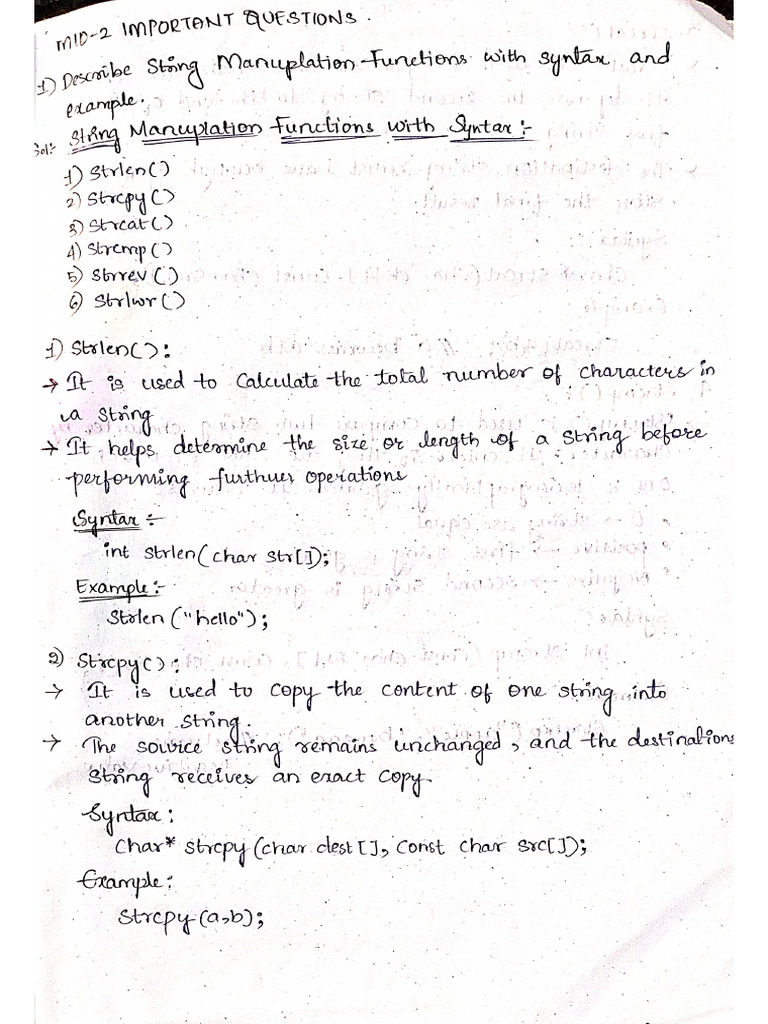 MID-2 IMPORTANT QUESTIONS.
1) Describe String Manuplation Functions with syntax and
example.
Sol:- String Manuplation Functions with Syntax:-
1) Strlen()
2) Strcpy()
3) Strcat()
4) Strcmp()
5) Strrev()
6) Strlwr()
1) Strlen():
→ It is used to calculate the total number of characters in
a string
→ It helps determine the size or length of a string before
performing furthuer operations
Syntax:-
int strlen(char str[]);
Example:-
Strlen ("hello");
2) Strcpy():
→ It is used to copy the content of one string into
another string.
→ The source string remains unchanged, and the destinations
string receives an exact copy.
Syntax:
Char* strcpy(char dest[], const char src[]);
Example:
Strcpy(a,b);